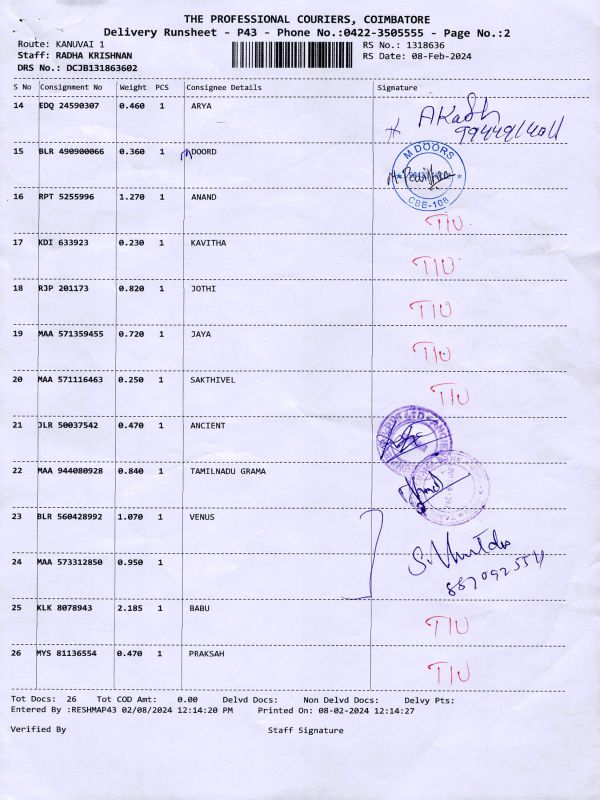 THE PROFESSIONAL COURIERS, COIMBATORE
Delivery Runsheet - P43 - Phone No.:0422-3505555 - Page No.:2
Route: KANUVAI 1 RS No.: 1318636
Staff: RADHA KRISHNAN RS Date: 08-Feb-2024
DRS No.: DCJB131863602
S No Consignment No Weight PCS Consignee Details Signature
14 EDQ 24590307 0.460 1 ARYA Akash
15 BLR 490900066 0.360 1 MDOORD M DOORS CBE-108
16 RPT 5255996 1.270 1 ANAND TIU
17 KDI 633923 0.230 1 KAVITHA TIU
18 RJP 201173 0.820 1 JOTHI TIU
19 MAA 571359455 0.720 1 JAYA TIU
20 MAA 571116463 0.250 1 SAKTHIVEL TIU
21 JLR 50037542 0.470 1 ANCIENT
22 MAA 944080928 0.840 1 TAMILNADU GRAMA
23 BLR 560428992 1.070 1 VENUS
24 MAA 573312850 0.950 1
25 KLK 8078943 2.185 1 BABU TIU
26 MYS 81136554 0.470 1 PRAKSAH TIU
Tot Docs: 26 Tot COD Amt: 0.00 Delvd Docs: Non Delvd Docs: Delvy Pts:
Entered By :RESHMAP43 02/08/2024 12:14:20 PM Printed On: 08-02-2024 12:14:27
Verified By Staff Signature